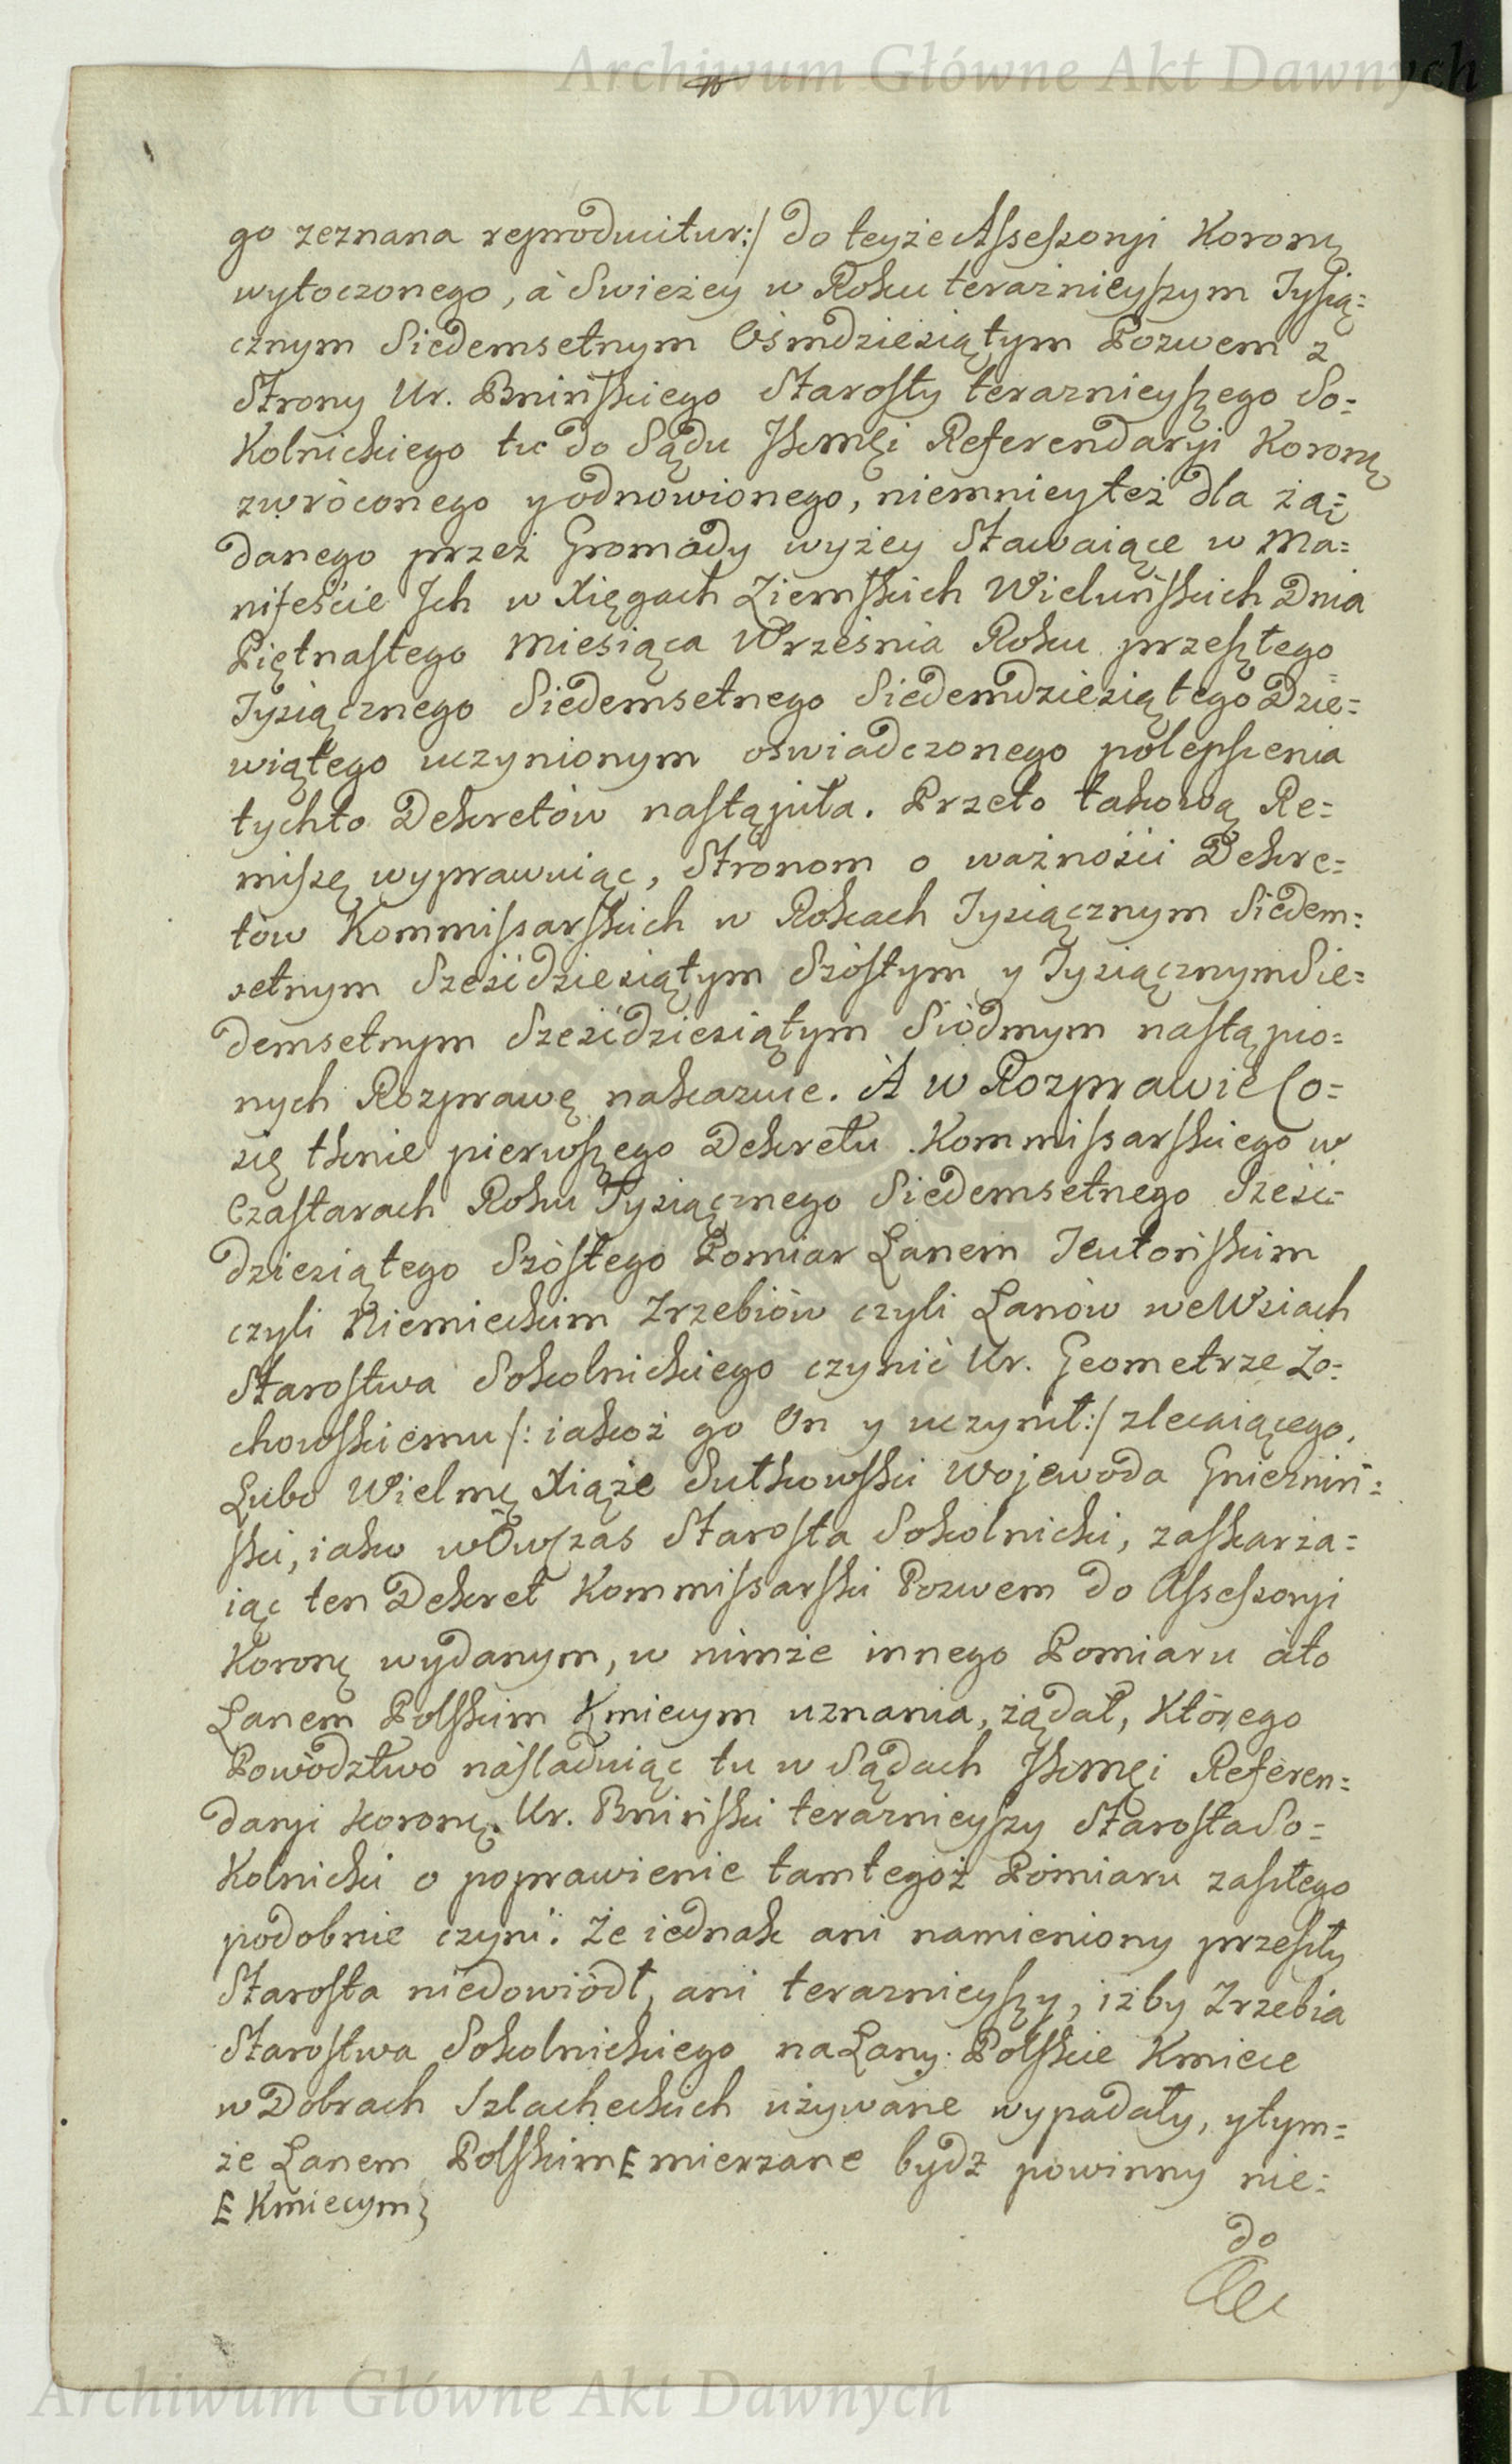 Archiwum Główne Akt Dawnych
go zeznana reproducitur:/ do teyże Assessoryi Koronę
wytoczonego, à Swieżey w Roku teraznieyszym Tysią=
cznym Siedemsetnym Osmdziesiątym Pozwem z
Strony Ur. Bnińskiego Starosty teraznieyszego So=
kolnickiego tu do Sądu JKmći Referendaryi Koronę
zwróconego y odnowionego, niemniey też dla żą=
danego przeż Gromady wyżey Stawaiące w Ma=
nifeście Jch w Xięgach Ziemskich Wieluńskich Dnia
Piętnastego Miesiąca Września Roku przeszłego
Tysiącznego Siedemsetnego Siedemdziesiątego Dzie=
wiątego uczynionym oswiadczonego polepszenia
tychto Dekretów nastąpiła. Przeto takową Re=
missę wyprawuiąc, Stronom o ważności Dekre=
tów Kommissarskich w Rokach Tysiącznym Siedem=
setnym Sześćdziesiątym Szóstym y Tysiącznym Sie=
demsetnym Sześćdziesiątym Siódmym nastąpio=
nych Rozprawę nakazuie. A w Rozprawie Co=
się tknie pierwszego Dekretu Kommissarskiego w
Czastarach Roku Tysiącznego Siedemsetnego Sześć=
dziesiątego Szóstego Pomiar Łanem Teutońskim
czyli Niemieckim Zrzebiów czyli Łanów we Wsiach
Starostwa Sokolnickiego czynić Ur. Geometrze Żo=
chowskiemu /: iakoż go On y uczynił:/ zlecaiącego,
Lubo Wielmę Xiąże Sułkowski Wojewoda Gnieźniń=
ski, iako wOwczas Starosta Sokolnicki, zaskarża=
iąc ten Dekret Kommissarski Pozwem do Assessoryi
Koronę wydanym, w nimże innego Pomiaru ato
Łanem Polskim Kmiecym uznania, żądał, Którego
Powództwo násladuiąc tu w Sądach JKmći Referen=
daryi koronę. Ur. Bniński teraznieyszy Starosta So=
kolnicki o poprawienie tamtegoż Pomiaru zaszłego
podobnie czyni. Że iednak ani namieniony przeszły
Starosta niedowiódł, ani teraznieyszy, iżby Zrzebia
Starostwa Sokolnickiego na Łany Polskie Kmiece
w Dobrach Szlacheckich używane wypadały, y tym=
że Łanem Polskim E mierzane bydź powinny nie=
E Kmiecym}
do
Archiwum Główne Akt Dawnych